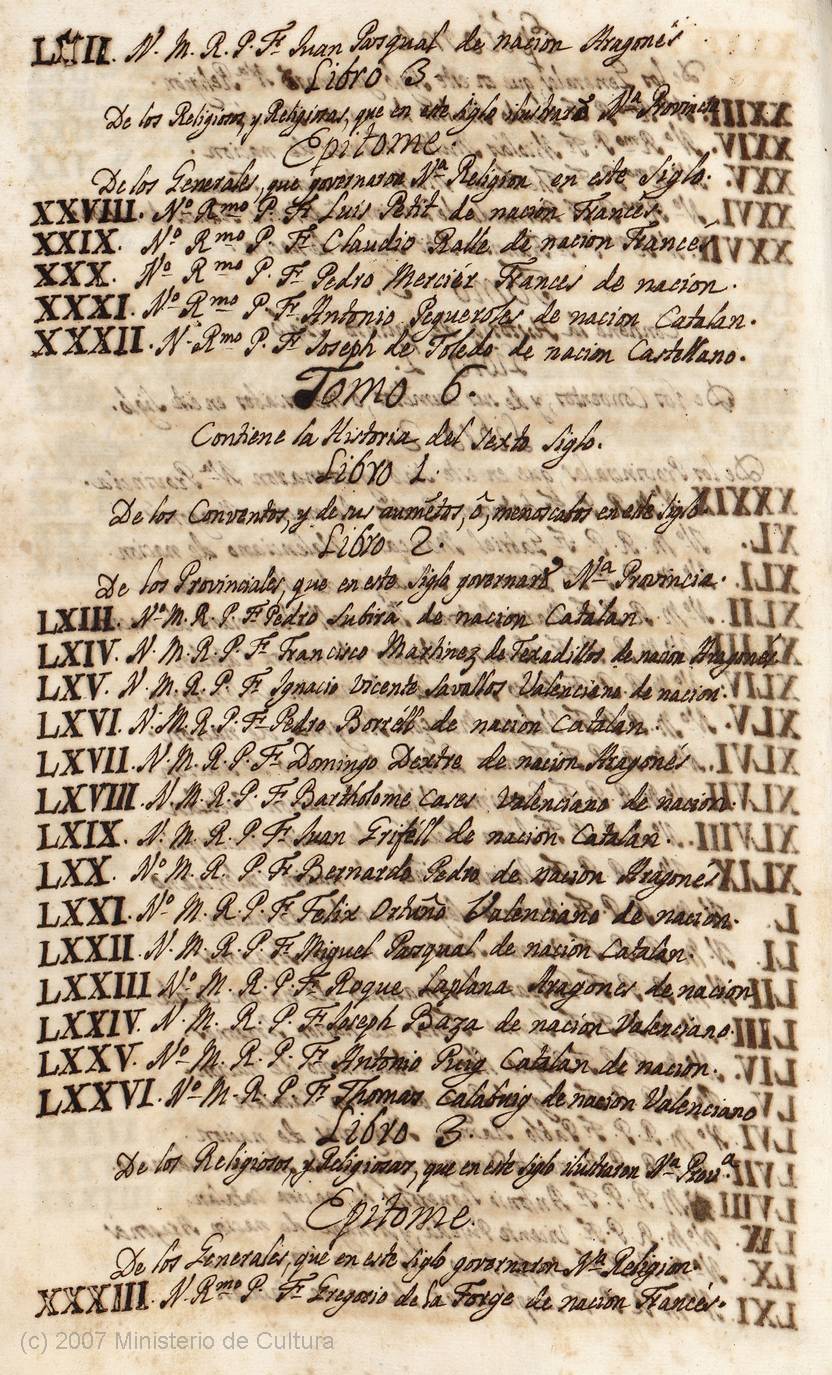 LXII. N. M. R. P. Fr. Juan Pasqual de nacion Aragonés
Libro 3
De los Religiosos, y Religiosas, que en este siglo ilustrarō Nra Provincia
Epitome.
De los Generales, que governaron Nra Religion en este Siglo.
XXVIII. No. Rmo P. Fr. Luis Petit de nacion Francés.
XXIX. No. Rmo P. Fr. Claudio Ralle de nacion Francés
XXX. No. Rmo P. Fr. Pedro Merciér Francés de nacion.
XXXI. No. Rmo P. Fr. Antonio Pequeroles de nacion Catalan.
XXXII. N. Rmo P. Fr. Joseph de Toledo de nacion Castellano.
Tomo 6.
Contiene la Historia del sexto siglo.
Libro 1.
De los Conventos, y de sus aumētos, ô, menoscabos en este siglo
Libro 2.
De los Provinciales, que en este siglo governarō Nra Provincia.
LXIII. No. M. R. P. Fr. Pedro Subirá de nacion Catalan.
LXIV. N. M. R. P. Fr. Francisco Martinez de Texadillos de nacion Aragonés
LXV. N. M. R. P. Fr. Ignacio Vicente Savallos Valenciano de nacion.
LXVI. N. M. R. P. Fr. Pedro Borréll de nacion Catalan.
LXVII. N. M. R. P. Fr. Domingo Dextre de nacion Aragonés
LXVIII. N. M. R. P. Fr. Bartholome Cases Valenciano de nacion.
LXIX. N. M. R. P. Fr. Juan Griféll de nacion Catalan.
LXX. No. M. R. P. Fr. Bernardo Pedro de nacion Aragonés
LXXI. No. M. R. P. Fr. Felix Ortuño Valenciano de nacion.
LXXII. N. M. R. P. Fr. Miguel Pasqual de nacion Catalan.
LXXIII No. M. R. P. Fr. Roque Laplana Aragones de nacion
LXXIV. N. M. R. P. Fr. Joseph Baza de nacion Valenciano.
LXXV. No. M. R. P. Fr. Antonio Puig Catalan de nacion.
LXXVI. No. M. R. P. Fr. Thomas Calabuig de nacion Valenciano
Libro 3.
De los Religiosos, y Religiosas, que en este siglo ilustraron Nra Prova.
Epitome.
De los Generales, que en este siglo governaron Nra Religion.
XXXIII. N. Rmo P. Fr. Gregorio de la Forge de nacion Francés.
(c) 2007 Ministerio de Cultura